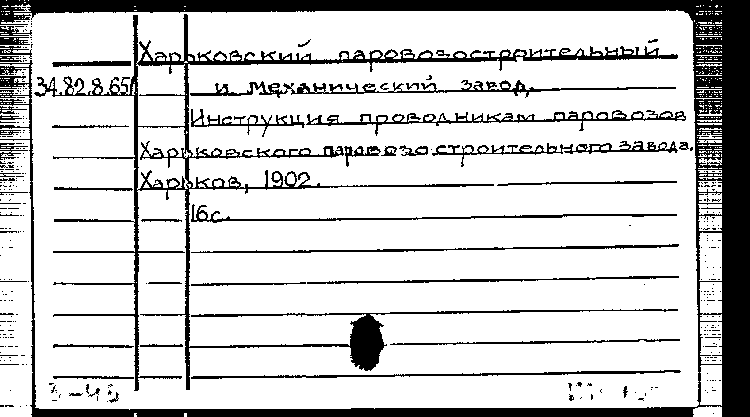 Харьковский паровозостроительный
34.82.8.65/ и механический завод.
Инструкция проводникам паровозов
Харьковского паровозостроительного завода.
Харьков, 1902.
16с.